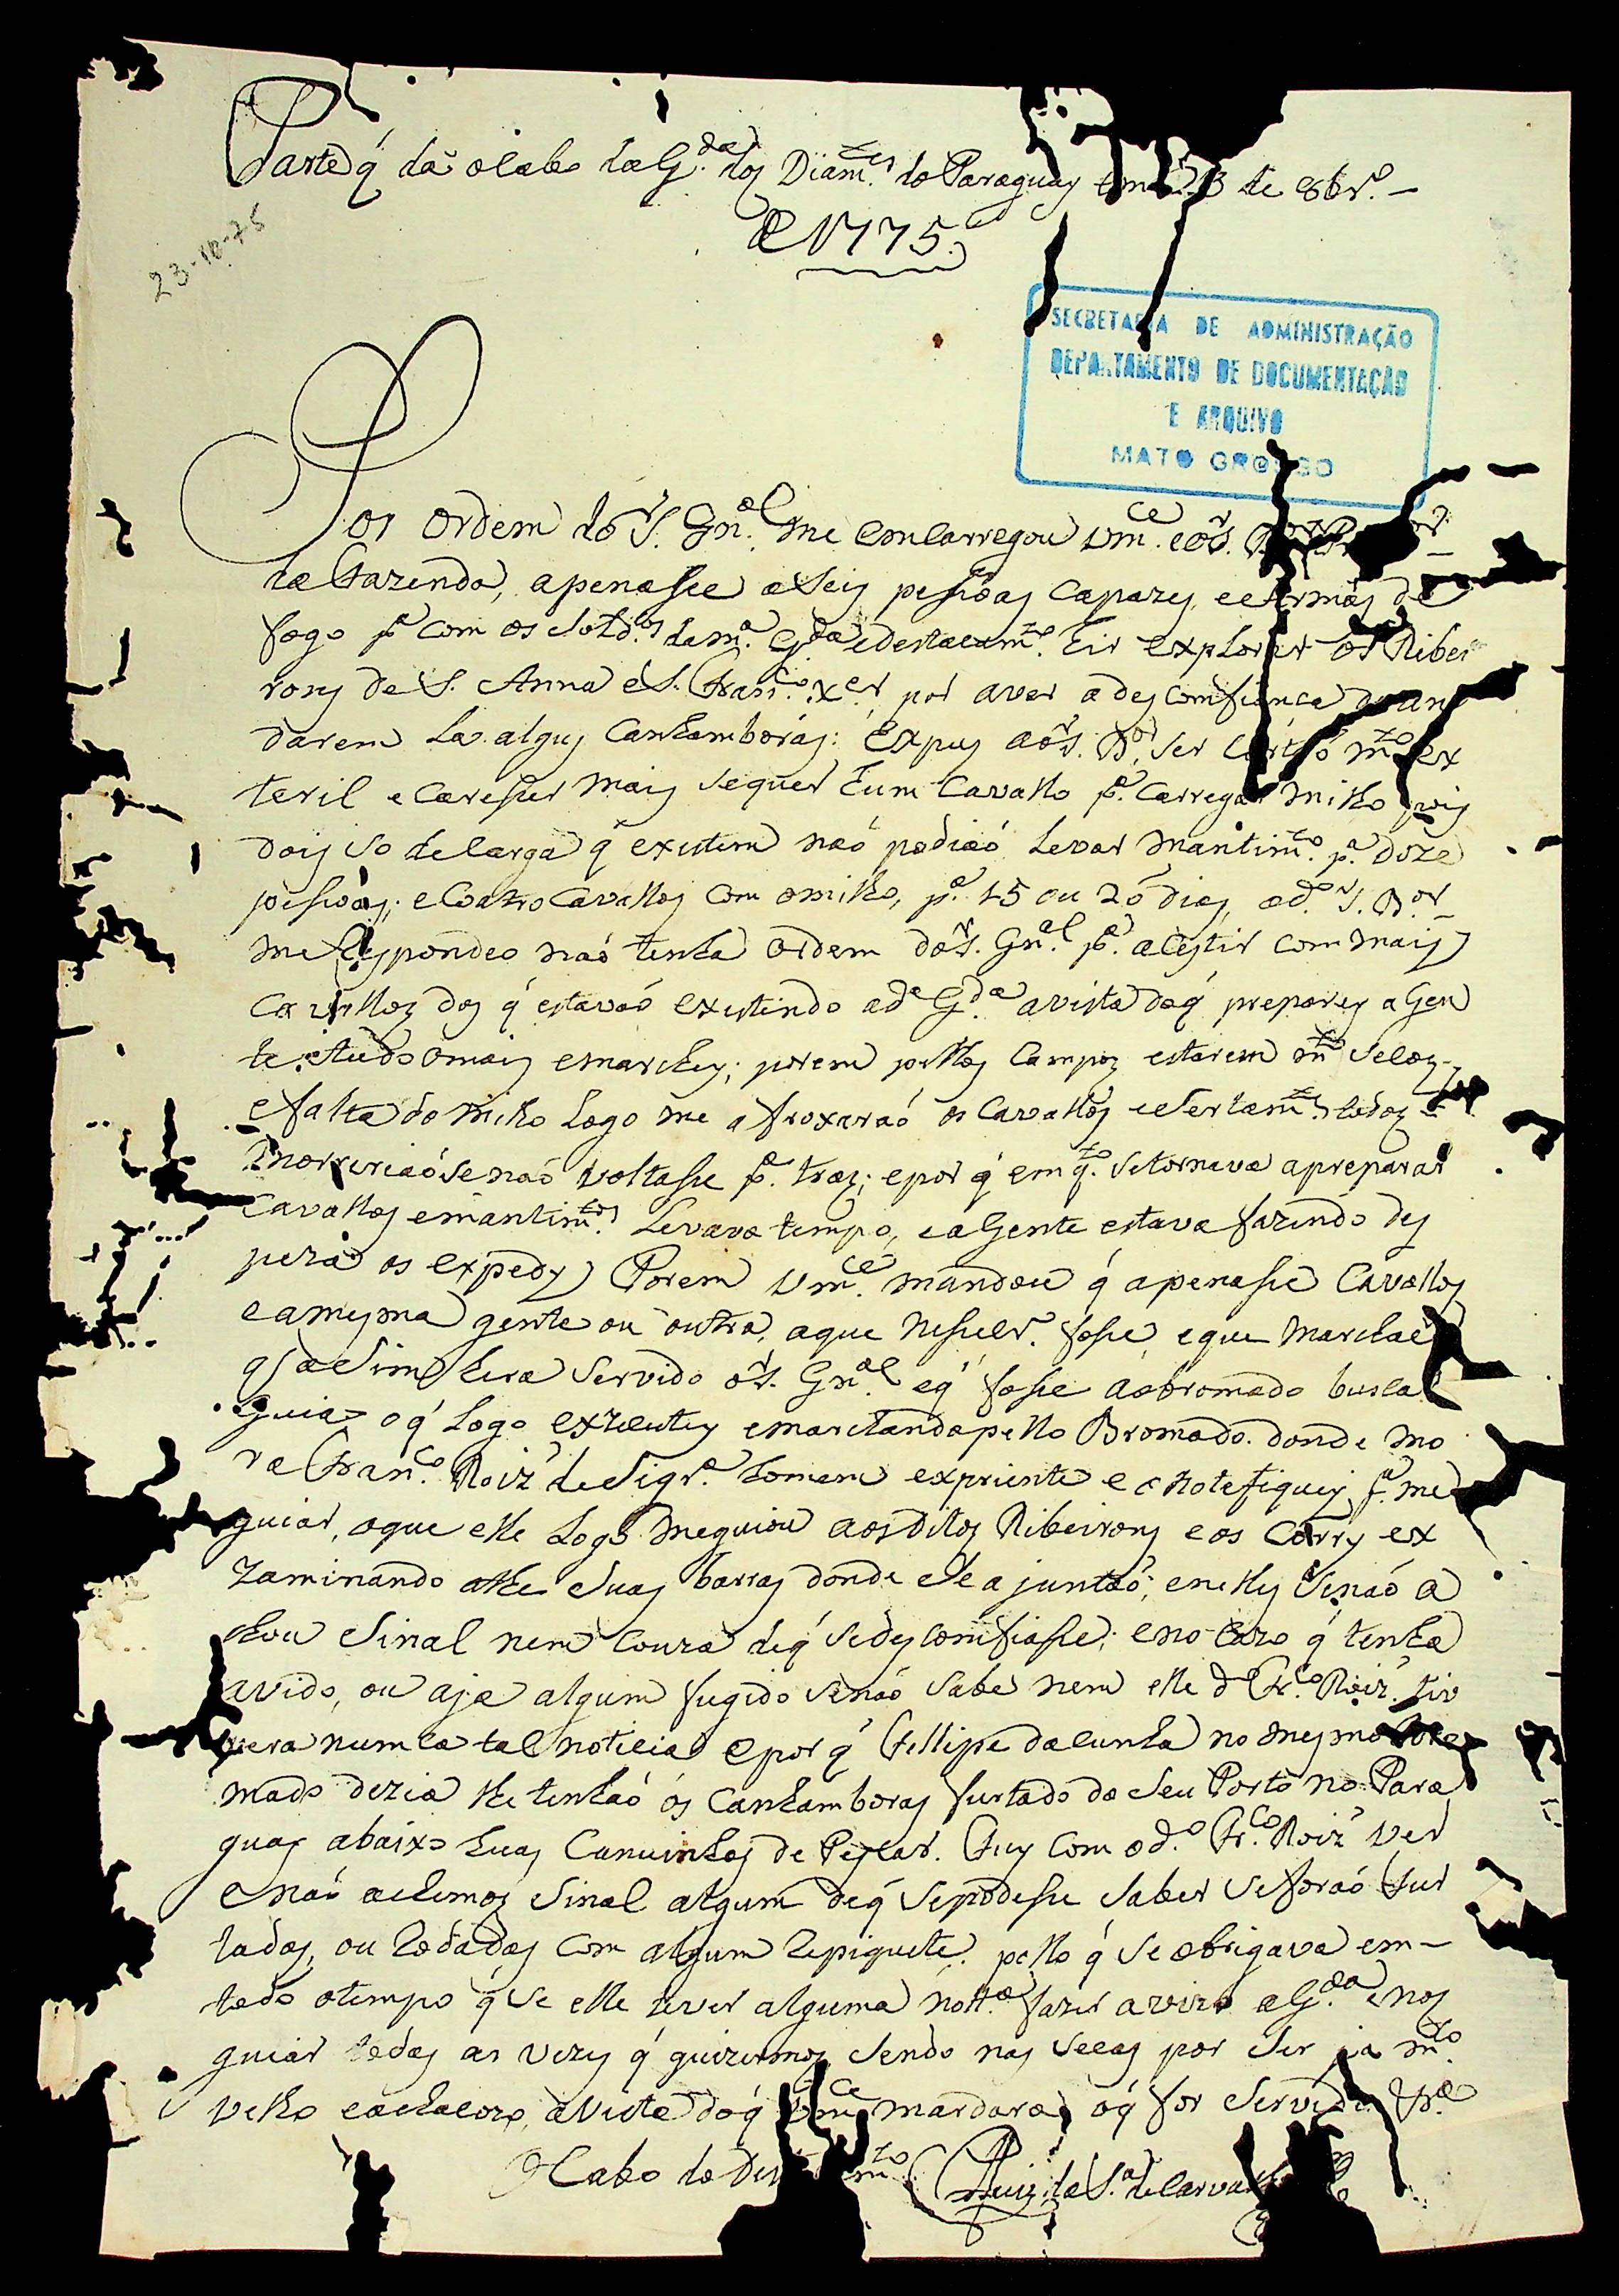 Parte q̃ dá o Cabo da G.da dos Diam.tes do Paraguay em 23 de 8br.o
de 1775.
23-10-75
SECRETARIA DE ADMINISTRAÇÃO
DEPARTAMENTO DE DOCUMENTAÇÃO
E ARQUIVO
MATO GROSSO
Por ordem do S.r Gn.al me emcarregou vm.ce e o S.r
da Fazenda, apenasse a seis pessoas capazes, e Armas de
fogo p.a com os sold.os da m.a G.da e destacam.to hir explorar os Ribei
rons de S. Anna e S. Fran.co X.er, por aver a desconfiança de an
darem La algus Canhamboras: Expus ao S.r P.or ser Certão m.to ex
teril e caresser mais sequer hum Cavallo p.a Carregar milho pois
dois so de carga q̃ existem não podião Levar Mantim.to p.a doze
pessoas; e Coatro Cavallos com o milho, p.a 15 ou 20 dias, o d.o S.r P.or
me Respondeo não tenha ordem do S.r Gn.al p.a acestir com mais
Cavallos dos q̃ estavão existindo a d.a G.da a vista do q̃ preparey a Gen
te e tudo o mais e marchey; porem pellos Campos estarem m.to secos
e falta do milho Logo me afroxarão os Cavallos e sertam.te todos
morrerião se não voltasse p.a tras; e por q̃ em q.to se tornava a preparar
Cavallos e mantim.tos Levava tempo, e a Gente estava fazendo des
peza os expedy Porem vm.ce mandou q̃ apenasse Cavallos
e a mesma gente ou outra, a que nesseçr.a fosse, e que marchace
q̃ asim hera servido o S.r Gn.al e q̃ fosse ao bromado buscar
Guia o q̃ Logo exzecutey e marchando pello Bromado donde mo
ra Fran.co Roiz' de Siqr.a homem expriente e o notefiquey p.a me
guiar, o que elle Logo me guiou aos ditos Ribeirons e os Corrgs ex
zaminando athe suas barras donde se ajuntão; e nelles se não a
chou sinal nem couza de q̃ se desconfiasse; e no cazo q̃ tenha
avido, ou aja algum fugido se não sabe nem elle d.o Fr.co Roiz' tiv
vera numca tal noticia e por q̃ Fellipe da Cunha no mesmo Bro
mado dezia lhe tenhão os Canhamboras furtado do seu Porto no Para
guay abaixo duas Canuinhas de Pescar. Fuy com o d.o Fr.co Roiz' ver
e não achamos sinal algum de q̃ se podesse saber se forão fur
tadas, ou Rodadas com algum Repiquete, pello q̃ se obrigava em
todo o tempo q̃ se elle tever alguma not.a fazer avizo a G.da e nos
guiar todas as vezes q̃ quizermos sendo nas secas por ser ja m.to
velho e achacozo, a vista do q̃ vm.ce mandara o q̃ for servido
O Cabo do Destacam.to Luiz da S.a de Carvalho